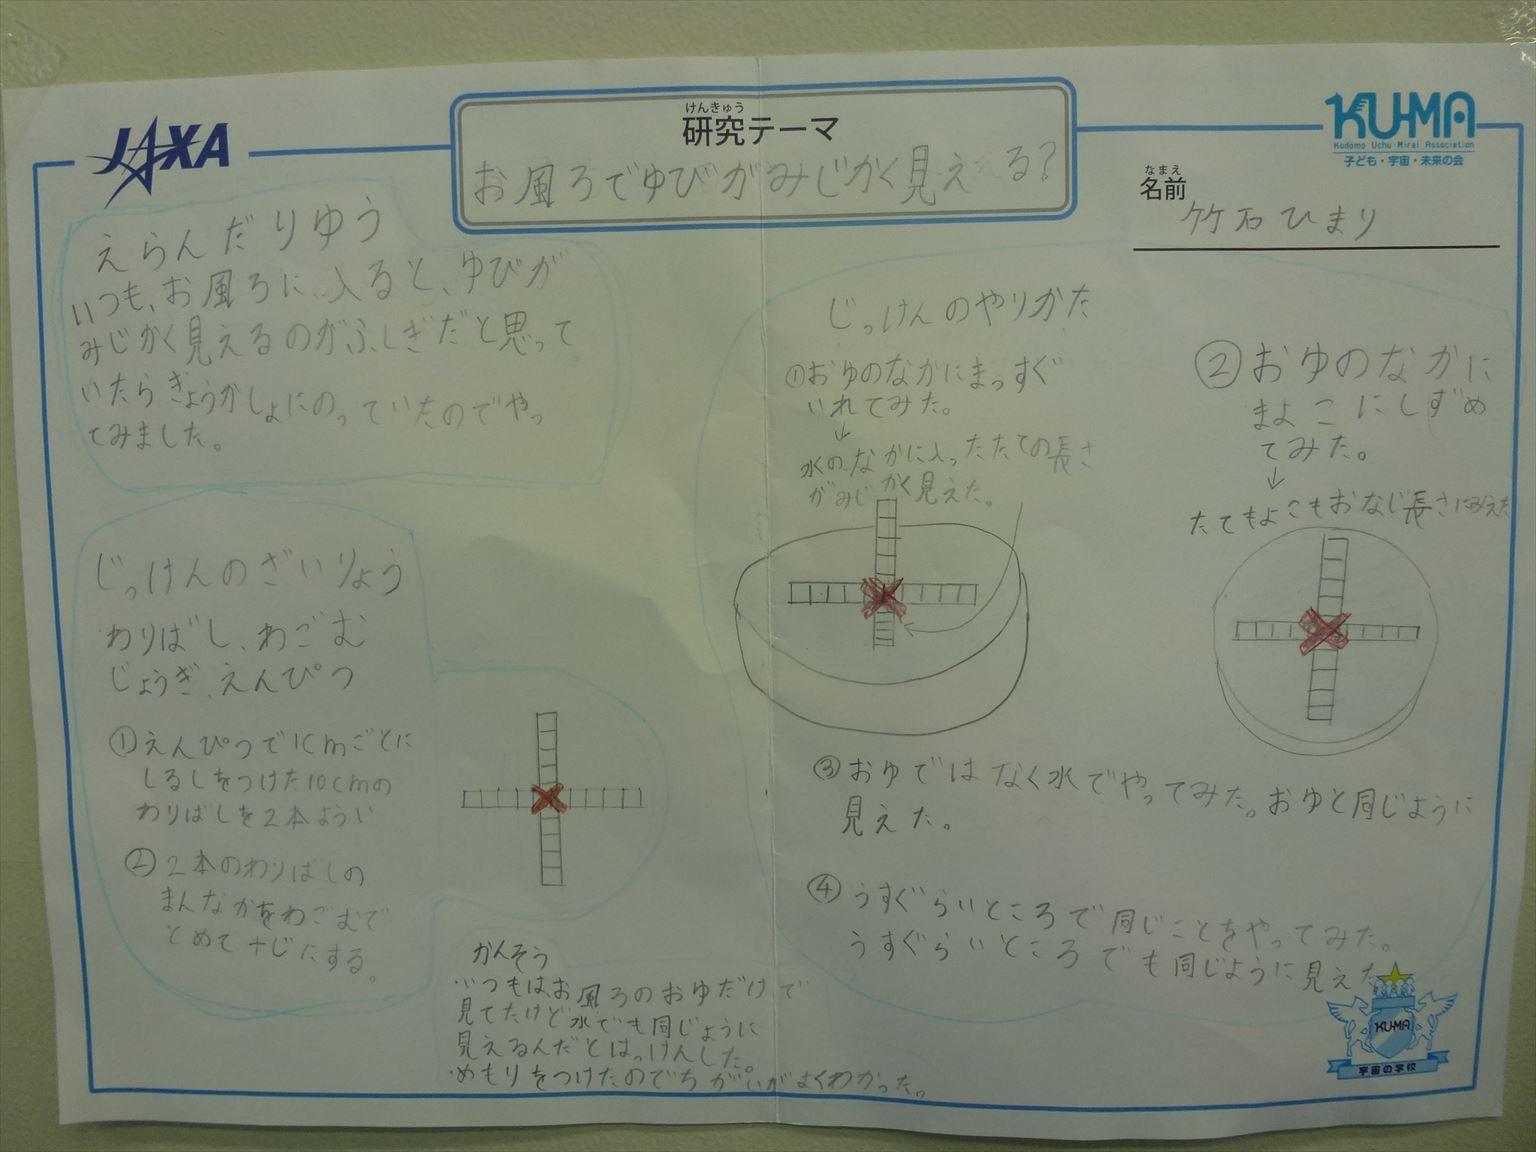 JAXA
けんきゅう
研究テーマ
お風ろでゆびがみじかく見える?
KU-MA
Kodomo Uchu Mirai Association
子ども・宇宙・未来の会
なまえ
名前
竹石ひまり
えらんだりゆう
いつも、お風ろに、入ると、ゆびが
みじかく見えるのがふしぎだと思って
いたらきょうかしょにのっていたのでやっ
てみました。
じっけんのざいりょう
わりばし、わごむ
じょうぎ、えんぴつ
①えんぴつで1cmごとに
しるしをつけた10cmの
わりばしを2本ようい
②2本のわりばしの
まんなかをわごむで
とめて十じにする。
じっけんのやりかた
①おゆのなかにまっすぐ
いれてみた。
↓
水のなかに入ったたての長さ
がみじかく見えた。
②おゆのなかに
まよこにしずめ
てみた。
↓
たてもよこもおなじ長さにみえた
③おゆではなく水でやってみた。おゆと同じように
見えた。
④うすぐらいところで同じことをやってみた。
うすぐらいところでも同じように見えた
かんそう
・いつもは、お風ろのおゆだけで
見てたけど水でも同じように
見えるんだとはっけんした。
・めもりをつけたのでちがいがよくわかった。
KU-MA
宇宙の学校